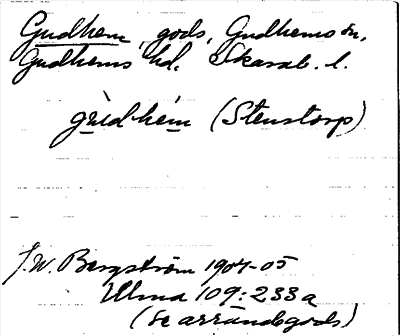 Gudhem, gods, Gudhems sn,
Gudhems hd. Skarab. l.
gùdhém (Stenstorp)
J. W. Bergström 1904-05
Ulma 109:233a
(se arrendegods)